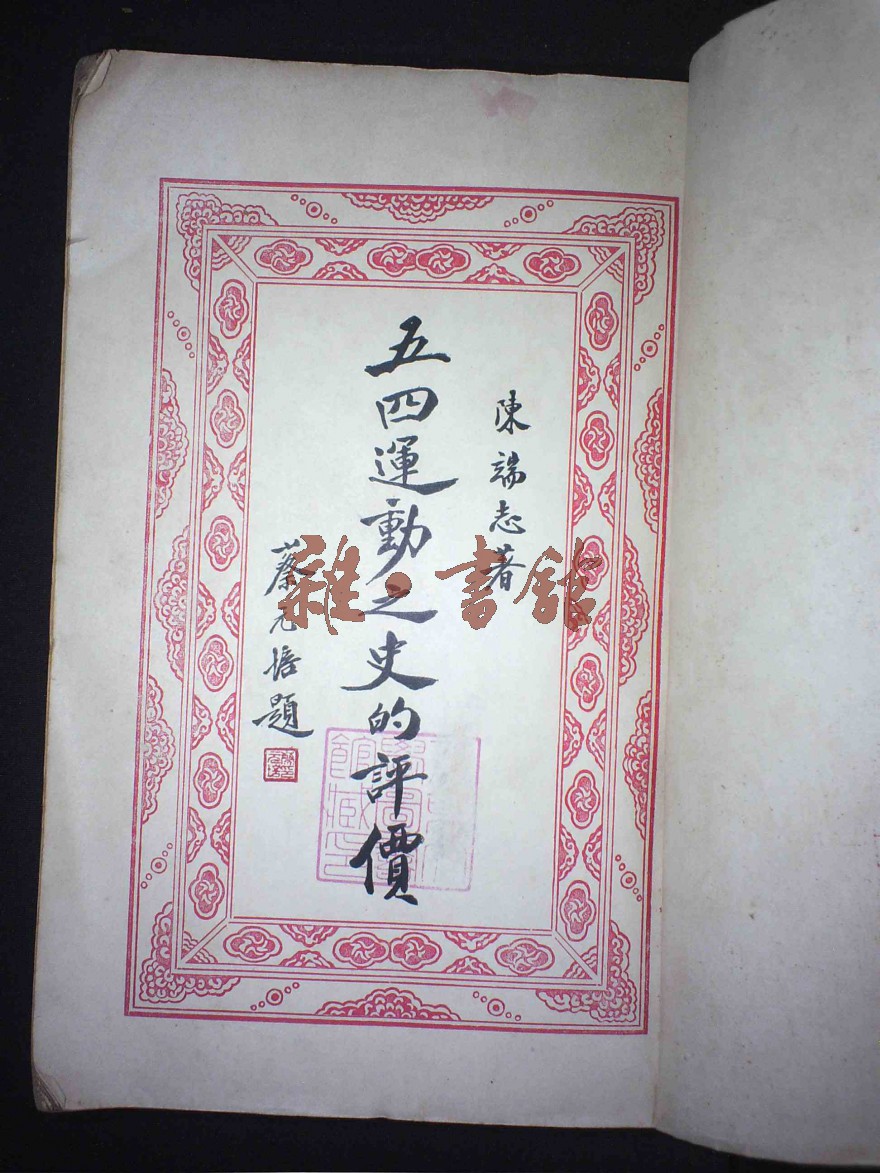 陳端志著
五四運動之史的評價
蔡元培題
雜·書館